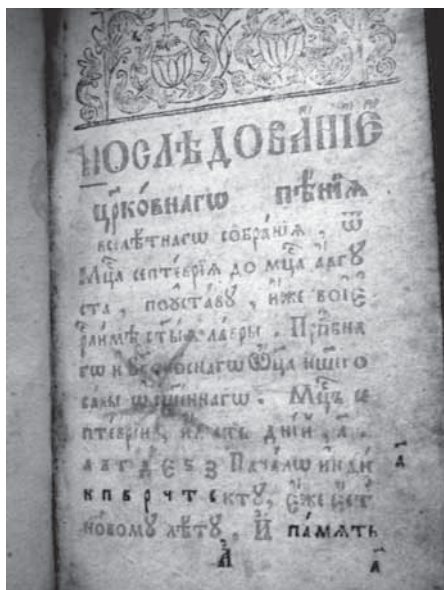 ПОСЛѢДОВА́НЇЕ
цр҃ко́внагѡ пѣ́нїѧ
вселѣ́тнагѡ собра́нїѧ, ѿ
Мц҃а септе́врїѧ до мц҃а а҆́вгꙋ
ста, поꙋста́вꙋ, и҆́же во і҆є
рⷭ҇ли́мѣ ст҃ы́ѧ ла́вры. Прпⷣбна
гѡ и҆ бг҃оно́снагѡ Ѻ҆ц҃а на́шегѡ
са́вы ѡ҆сщ҃е́ннагѡ. Мц҃ъ се
пте́врїи, и҆́мать дні́й, л҃.
А В Г Д Є Ѕ З Нача́лѡ и҆нди
к п в р ч т є ктꙋ, є҆́же є҆́сть
но́вомꙋ лѣ́тꙋ, И҆ па́мѧть
а҃
л҃
а҃